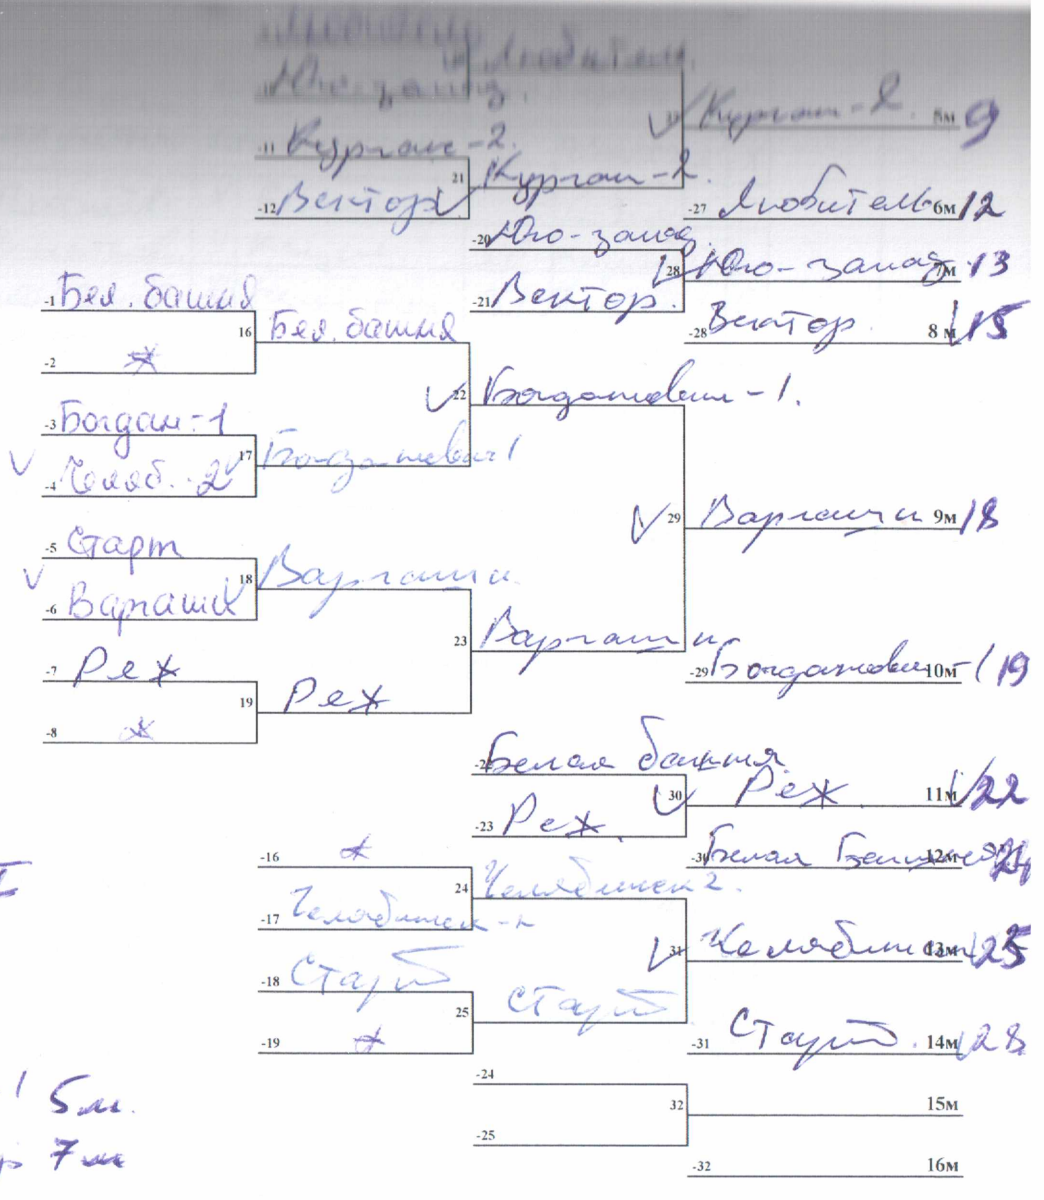 Любители
Юго-запад.
Любители.
Курган-2. 5м 9
-11 Курган-2.
21 Курган-2.
-12 Вектор
-27 Любители 6м 12
-20 Юго-запад
28 Юго-запад 13
-21 Вектор.
-28 Вектор. 8 м 15
-1 Бел. башня
16 Бел. башня
-2 *
22 Богданович-1.
-3 Богдан.-1
17 Богданович 1
-4 Челяб. 2
29 Варгаши 9м 18
-5 Старт
18 Варгаши
-6 Варгаши
23 Варгаши
-7 Реж
-29 Богданович 1 10м 19
19 Реж
-8 *
Белая башня.
30 Реж 11м 22
-23 Реж.
-30 Белая Башня 12м 24
-16 *
24 Челябинск 2.
-17 Челябинск-2
31 Челябинск 13м 25
-18 Старт
25 Старт
-19 *
-31 Старт. 14м 28
-24
5м.
32 15м
-25
7м
-32 16м